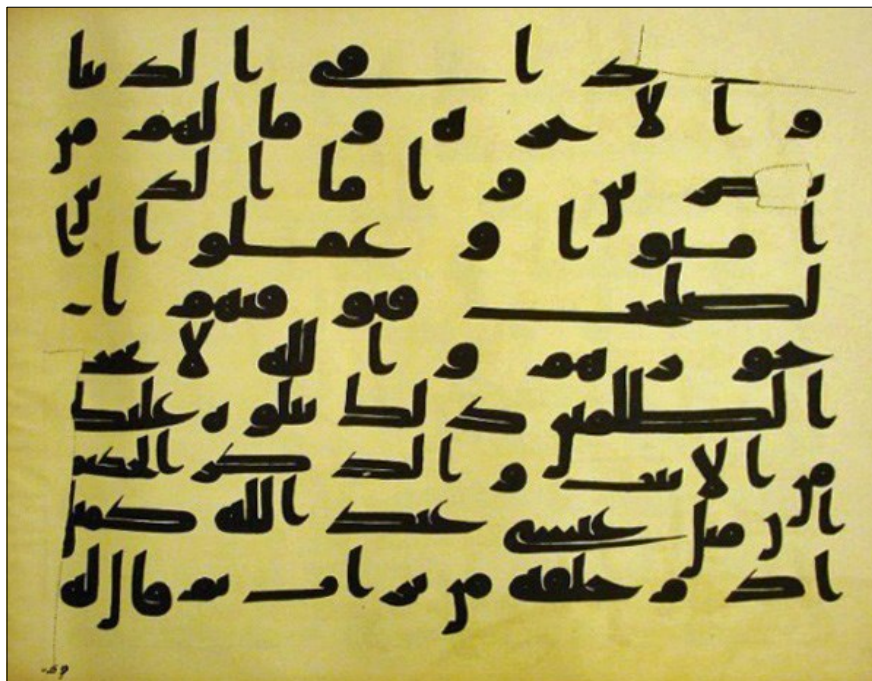 دا في الدنيا
والاخره وما لهم من
نصرين واما الذين
امنوا وعملوا ا
لصلحت فيوفيهم ا
جورهم والله لا يحب
الظلمين ذلك نتلوه عليك
من الايت والذكر الحكيم
ان مثل عيسى عند الله كمثل
ادم خلقه من تراب ثم قال له